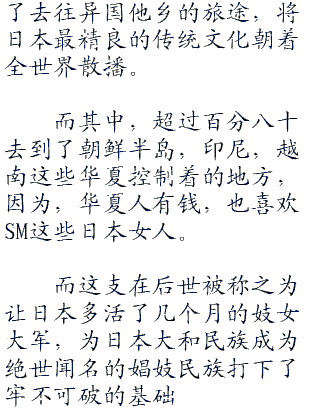 了去往异国他乡的旅途，将
日本最精良的传统文化朝着
全世界散播。
而其中，超过百分八十
去到了朝鲜半岛，印尼，越
南这些华夏控制着的地方，
因为，华夏人有钱，也喜欢
SM这些日本女人。
而这支在后世被称之为
让日本多活了几个月的妓女
大军，为日本大和民族成为
绝世闻名的娼妓民族打下了
牢不可破的基础